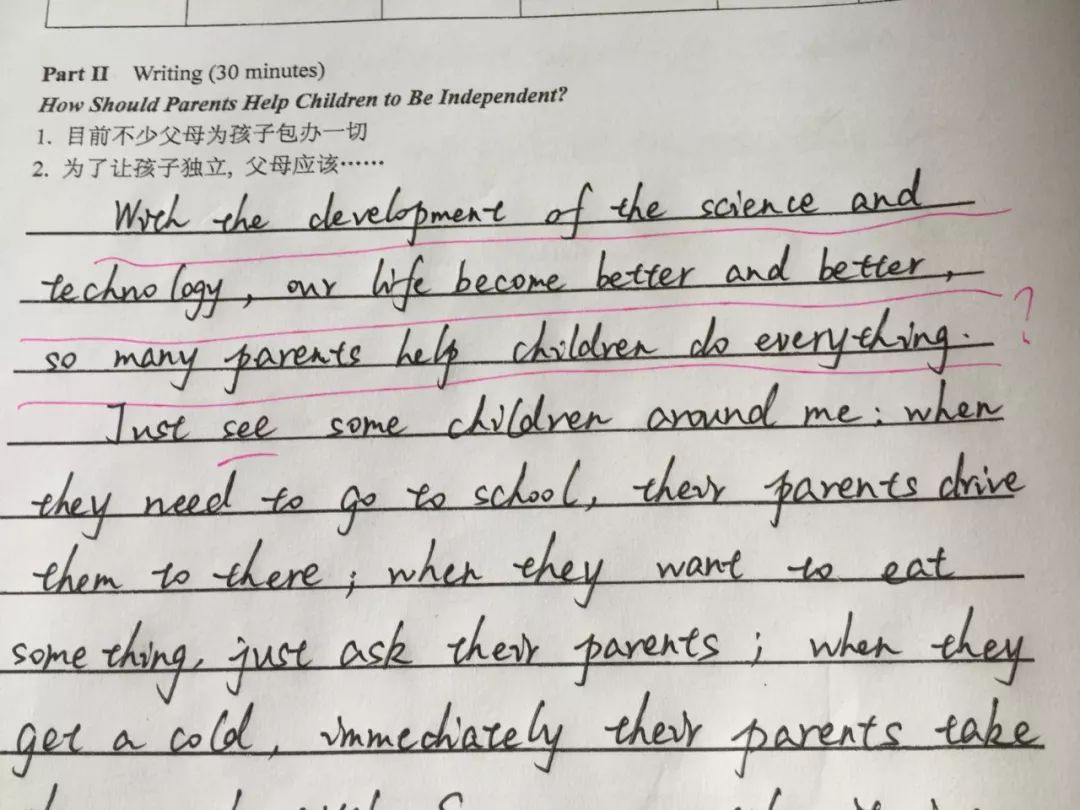 Part II Writing (30 minutes)
How Should Parents Help Children to Be Independent?
1. 目前不少父母为孩子包办一切
2. 为了让孩子独立, 父母应该……
With the development of the science and
technology, our life become better and better,
so many parents help children do everything. ?
Just see some children around me: when
they need to go to school, their parents drive
them to there; when they want to eat
something, just ask their parents; when they
get a cold, immediately their parents take